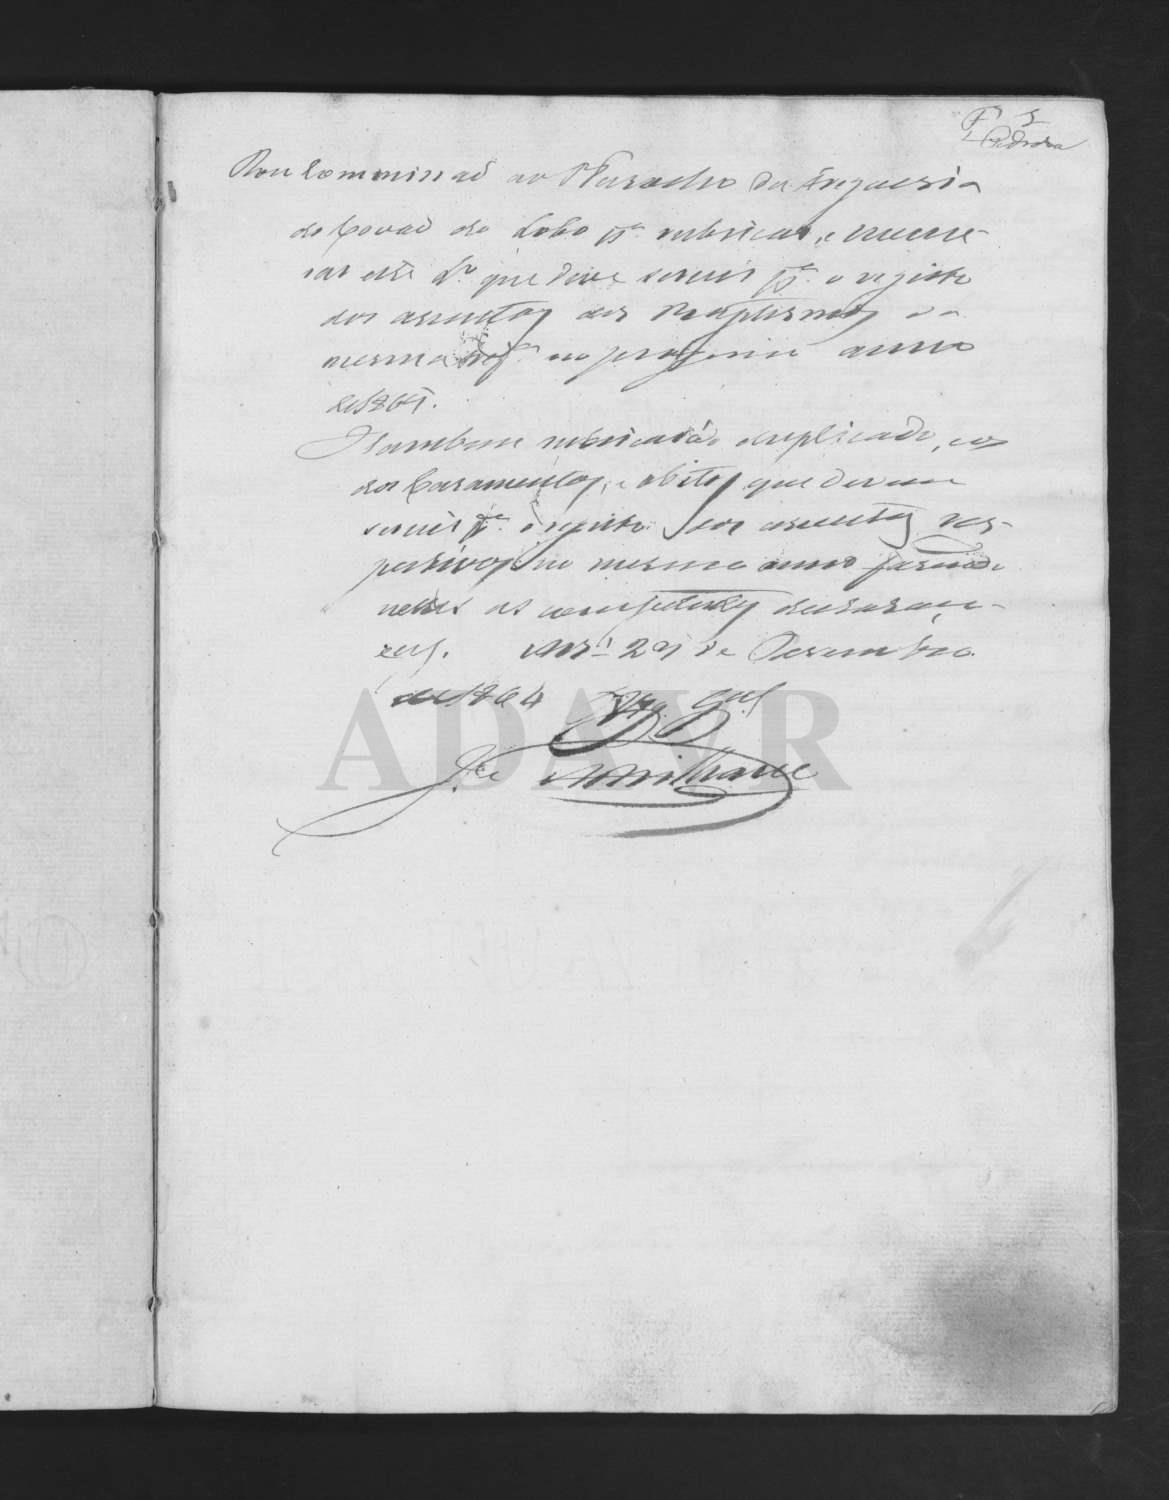 Fs 1
Pedroza
Dou Commissaõ ao Parocho da Freguesia
de Covaõ do Lobo pª rubricar, e nume-
rar este Lº que deve servir pª o registo
dos assentos dos Baptismos da
mesma Fregª no proximo anno
de 1865.
Tambem rubricará o duplicado, e os
dos Casamentos, e obitos que devem
servir pª o registo dos assentos res-
pectivos no mesmo anno fasendo
nelles as competentes declaraço-
es. 29 de Desembro
de 1864
ADAVR